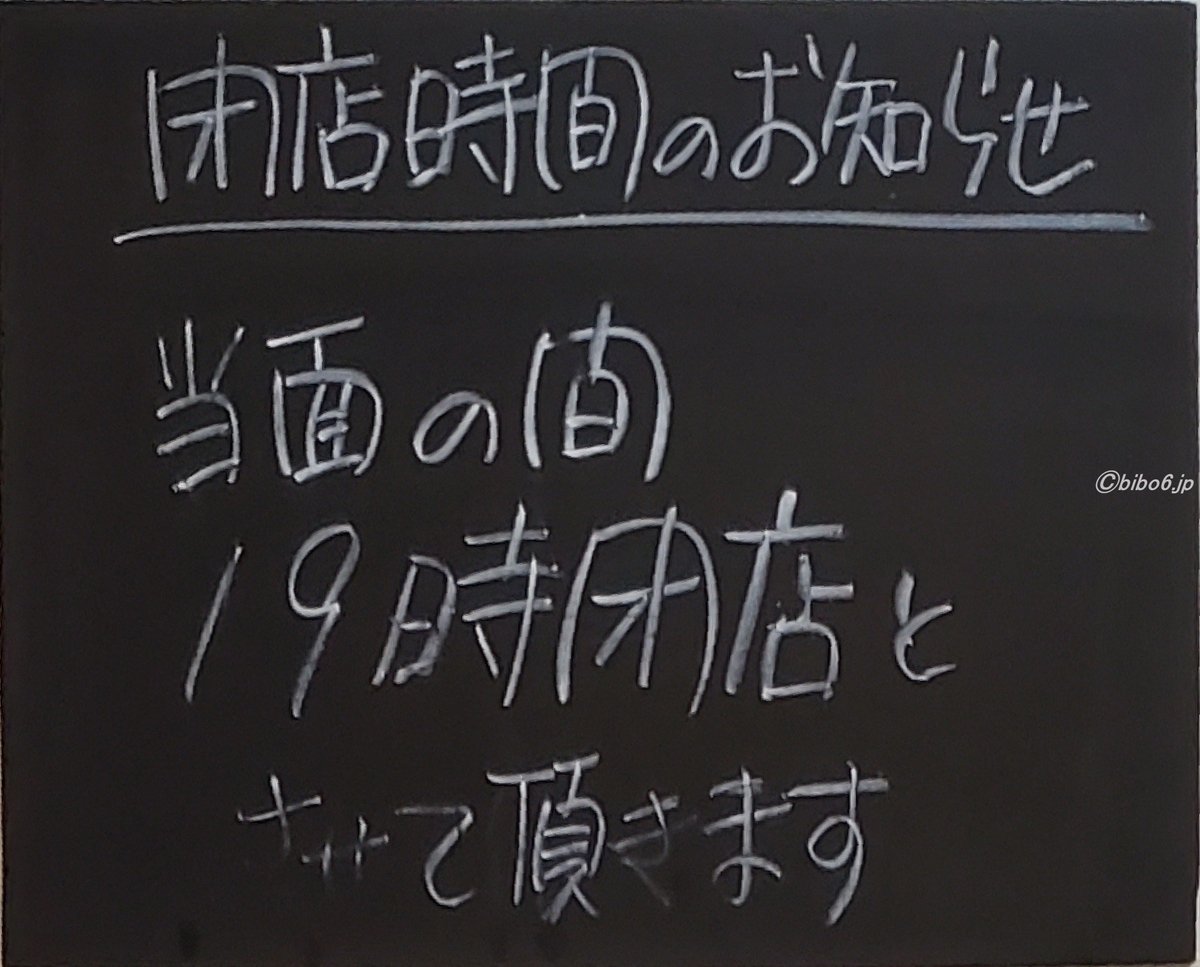 閉店時間のお知らせ
当面の間
©bibo6.jp
19時閉店と
させて頂きます